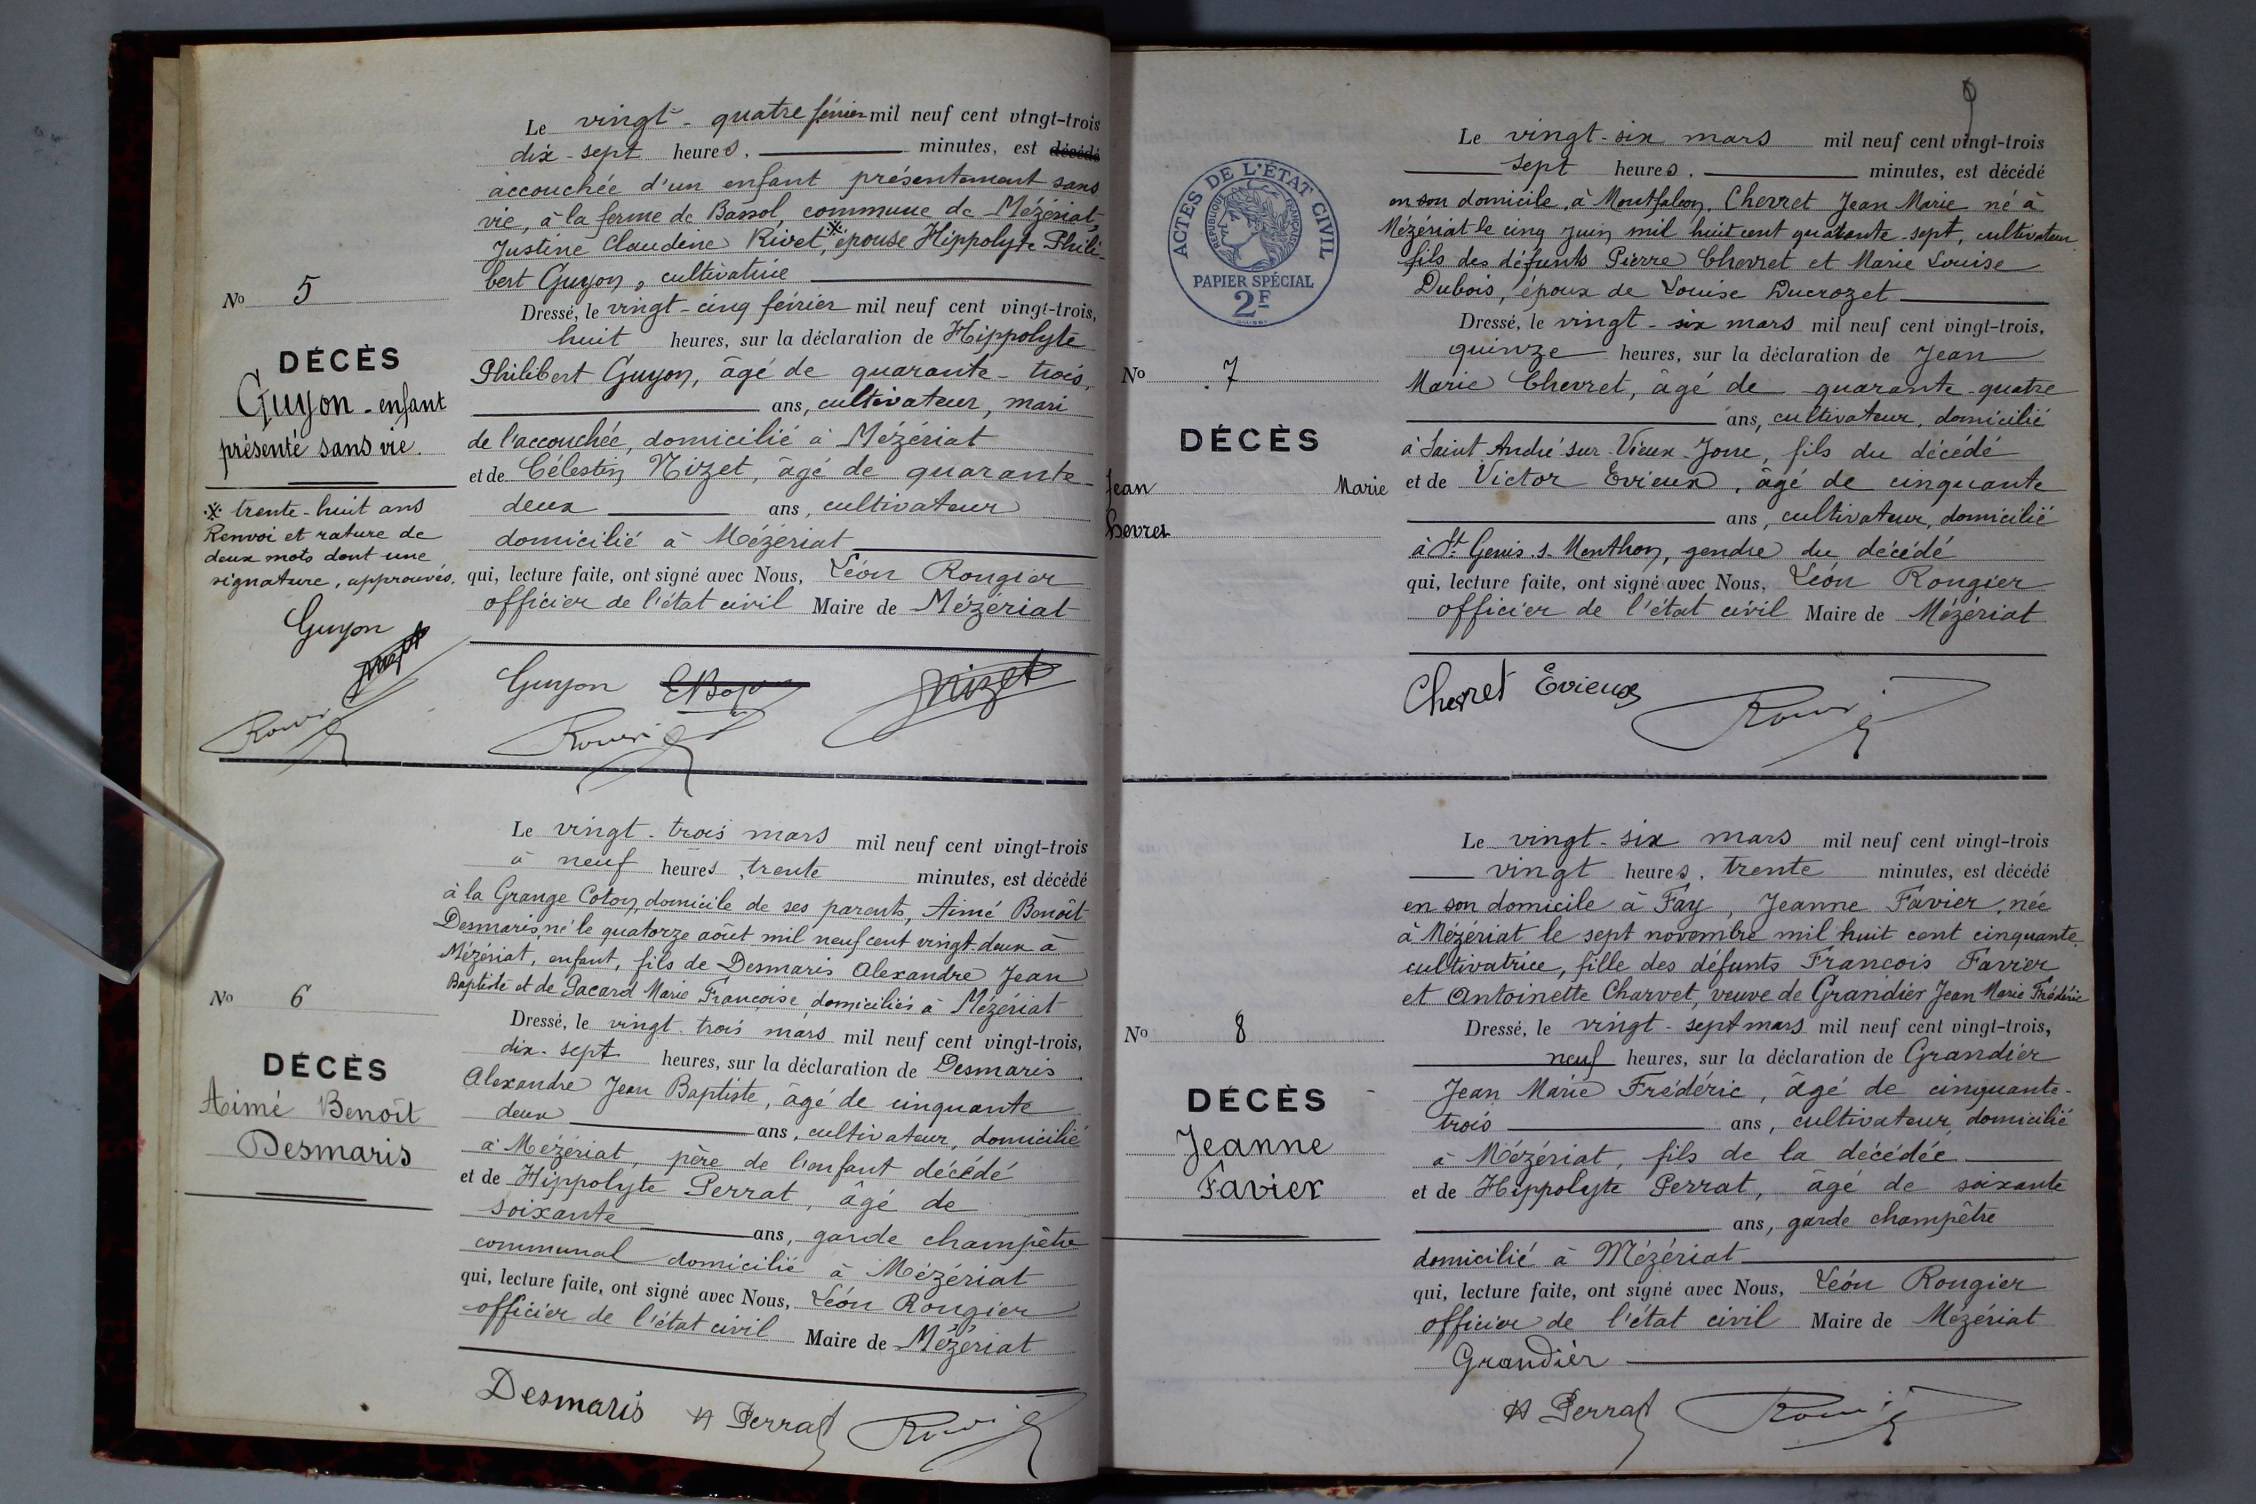 Le vingt-quatre février mil neuf cent vingt-trois
dix-sept heures, minutes, est décédé
accouchée d'un enfant présentement sans
vie, à la ferme de Bassol, commune de Mézériat,
Justine Claudine Rivet,※ épouse Hippolyte Phili-
bert Guyon, cultivatrice
No 5
Dressé, le vingt-cinq février mil neuf cent vingt-trois,
huit heures, sur la déclaration de Hippolyte
DÉCÈS
Philibert Guyon, âgé de quarante-trois,
Guyon - enfant
ans, cultivateur, mari
présenté sans vie.
de l'accouchée, domicilié à Mézériat
et de Célestin Nizet, âgé de quarante-
※ trente-huit ans
Renvoi et rature de
deux mots dont une
signature, approuvés.
deux ans, cultivateur
domicilié à Mézériat
qui, lecture faite, ont signé avec Nous, Léon Rougier
officier de l'état civil Maire de Mézériat
Guyon
Guyon Nizet
Le vingt-trois mars mil neuf cent vingt-trois
à neuf heures, trente minutes, est décédé
à la Grange Coton, domicile de ses parents, Aimé Benoît
Desmaris, né le quatorze août mil neuf cent vingt-deux à
Mézériat, enfant, fils de Desmaris Alexandre Jean
Baptiste et de Pacard Marie Françoise domiciliés à Mézériat
No 6
Dressé, le vingt-trois mars mil neuf cent vingt-trois,
dix-sept heures, sur la déclaration de Desmaris
DÉCÈS
Aimé Benoît
Desmaris
Alexandre Jean Baptiste, âgé de cinquante
deux ans, cultivateur, domicilié
à Mézériat, père de l'enfant décédé
et de Hippolyte Perrat, âgé de
soixante ans, garde champêtre
communal domicilié à Mézériat
qui, lecture faite, ont signé avec Nous, Léon Rougier
officier de l'état civil Maire de Mézériat
Desmaris H Perrat
9
ACTES DE L'ÉTAT CIVIL
RÉPUBLIQUE FRANÇAISE
PAPIER SPÉCIAL
2F
Le vingt-six mars mil neuf cent vingt-trois
sept heures, minutes, est décédé
en son domicile, à Montfalcon, Chevret Jean Marie né à
Mézériat le cinq Juin mil huit cent quarante-sept, cultivateur
fils des défunts Pierre Chevret et Marie Louise
Dubois, époux de Louise Ducrozet
Dressé, le vingt-six mars mil neuf cent vingt-trois,
quinze heures, sur la déclaration de Jean
No 7
Marie Chevret, âgé de quarante-quatre
ans, cultivateur, domicilié
DÉCÈS
Jean Marie
Chevret
à Saint André sur Vieux Jonc, fils du décédé
et de Victor Evieux, âgé de cinquante
ans, cultivateur, domicilié
à St Genis s. Menthon, gendre du décédé
qui, lecture faite, ont signé avec Nous, Léon Rougier
officier de l'état civil Maire de Mézériat
Chevret Evieux
Le vingt-six mars mil neuf cent vingt-trois
vingt heures, trente minutes, est décédé
en son domicile à Fay, Jeanne Favier, née
à Mézériat le sept novembre mil huit cent cinquante
cultivatrice, fille des défunts François Favier
et Antoinette Charvet, veuve de Grandier Jean Marie Frédéric
No 8
Dressé, le vingt-sept mars mil neuf cent vingt-trois,
neuf heures, sur la déclaration de Grandier
DÉCÈS
Jeanne
Favier
Jean Marie Frédéric, âgé de cinquante-
trois ans, cultivateur domicilié
à Mézériat, fils de la décédée
et de Hippolyte Perrat, âgé de soixante
ans, garde champêtre
domicilié à Mézériat
qui, lecture faite, ont signé avec Nous, Léon Rougier
officier de l'état civil Maire de Mézériat
Grandier
H Perrat